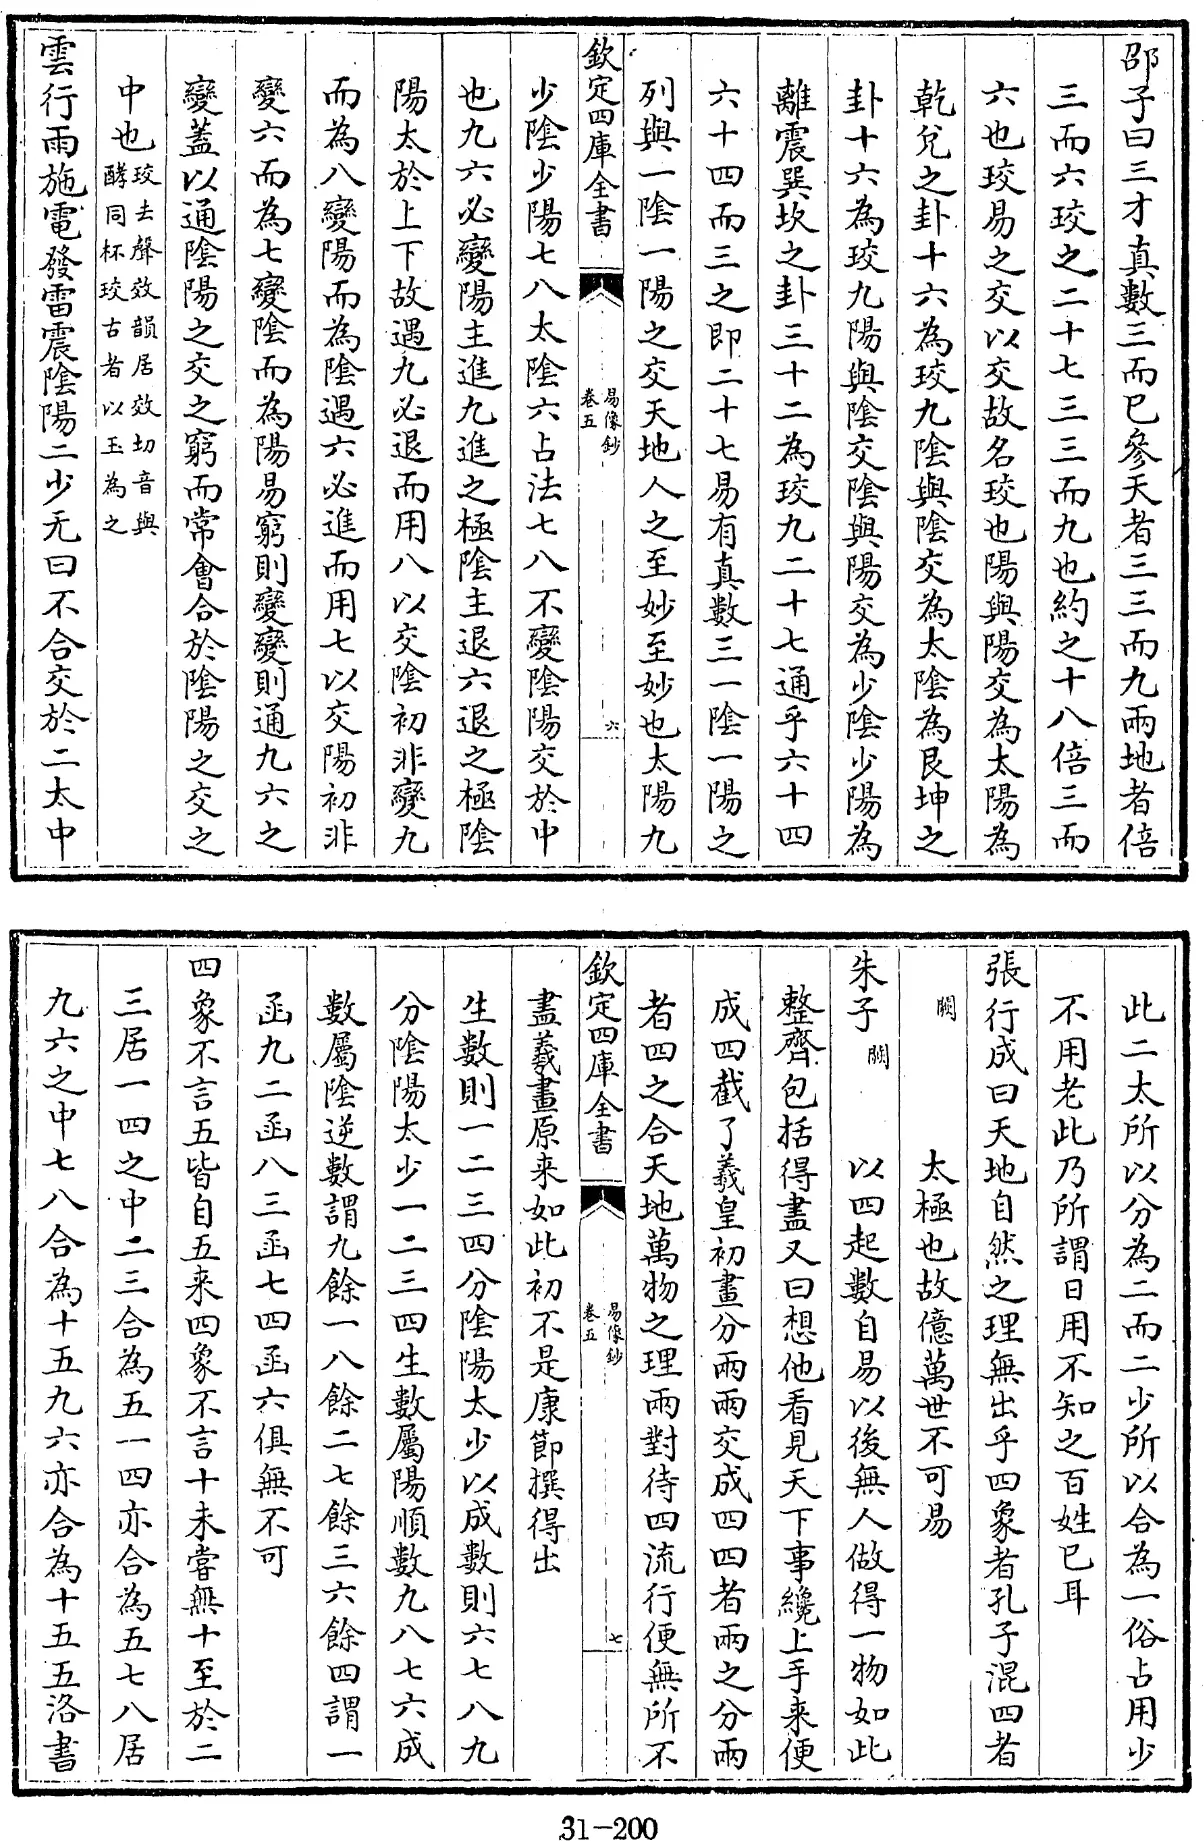 邵子曰三才真數三而已參天者三三而九兩地者倍
三而六珓之二十七三三而九也約之十八倍三而
六也珓易之交以交故名珓也陽與陽交為太陽為
乾兌之卦十六為珓九陰與陰交為太陰為艮坤之
卦十六為珓九陽與陰交陰與陽交為少陰少陽為
離震巽坎之卦三十二為珓九二十七通乎六十四
六十四而三之即二十七易有真數三一陰一陽之
列與一陰一陽之交天地人之至妙至妙也太陽九
欽定四庫全書
易像鈔
卷五
六
少陰少陽七八太陰六占法七八不變陰陽交於中
也九六必變陽主進九進之極陰主退六退之極陰
陽太於上下故遇九必退而用八以交陰初非變九
而為八變陽而為陰遇六必進而用七以交陽初非
變六而為七變陰而為陽易窮則變變則通九六之
變蓋以通陰陽之交之窮而常會合於陰陽之交之
中也珓去聲效韻居效切音與
酵同杯珓古者以玉為之
雲行雨施電發雷震陰陽二少无日不合交於二太中
此二太所以分為二而二少所以合為一俗占用少
不用老此乃所謂日用不知之百姓已耳
張行成曰天地自然之理無出乎四象者孔子混四者
闕 太極也故億萬世不可易
朱子闕 以四起數自易以後無人做得一物如此
整齊包括得盡又曰想他看見天下事纔上手來便
成四截了羲皇初畫分兩兩交成四四者兩之分兩
者四之合天地萬物之理兩對待四流行便無所不
欽定四庫全書
易像鈔
卷五
七
盡羲畫原来如此初不是康節撰得出
生數則一二三四分陰陽太少以成數則六七八九
分陰陽太少一二三四生數屬陽順數九八七六成
數屬陰逆數謂九餘一八餘二七餘三六餘四謂一
函九二函八三函七四函六俱無不可
四象不言五皆自五来四象不言十未嘗無十至於二
三居一四之中二三合為五一四亦合為五七八居
九六之中七八合為十五九六亦合為十五五洛書
31-200